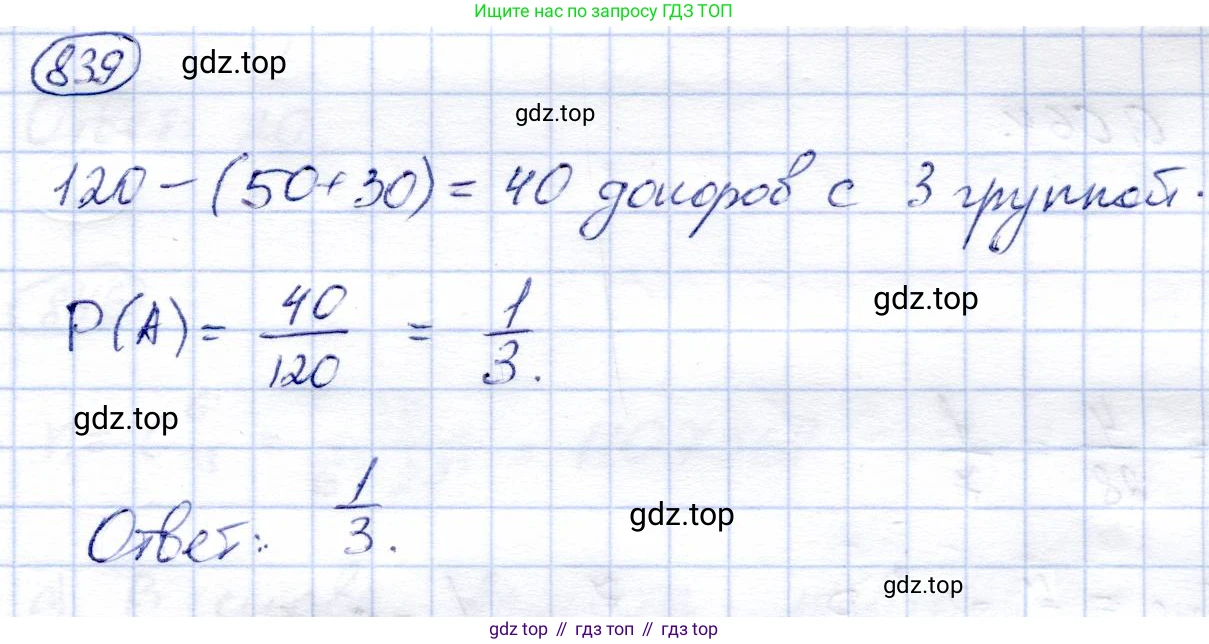 Ищите нас по запросу ГДЗ ТОП
839 gdz.top
gdz.top
120 - (50+30) = 40 доноров с 3 группой.
gdz.top
P(A) = 40/120 = 1/3.
gdz.top
Ответ: 1/3.
gdz.top
gdz.top
gdz top // гдз топ // гдз top